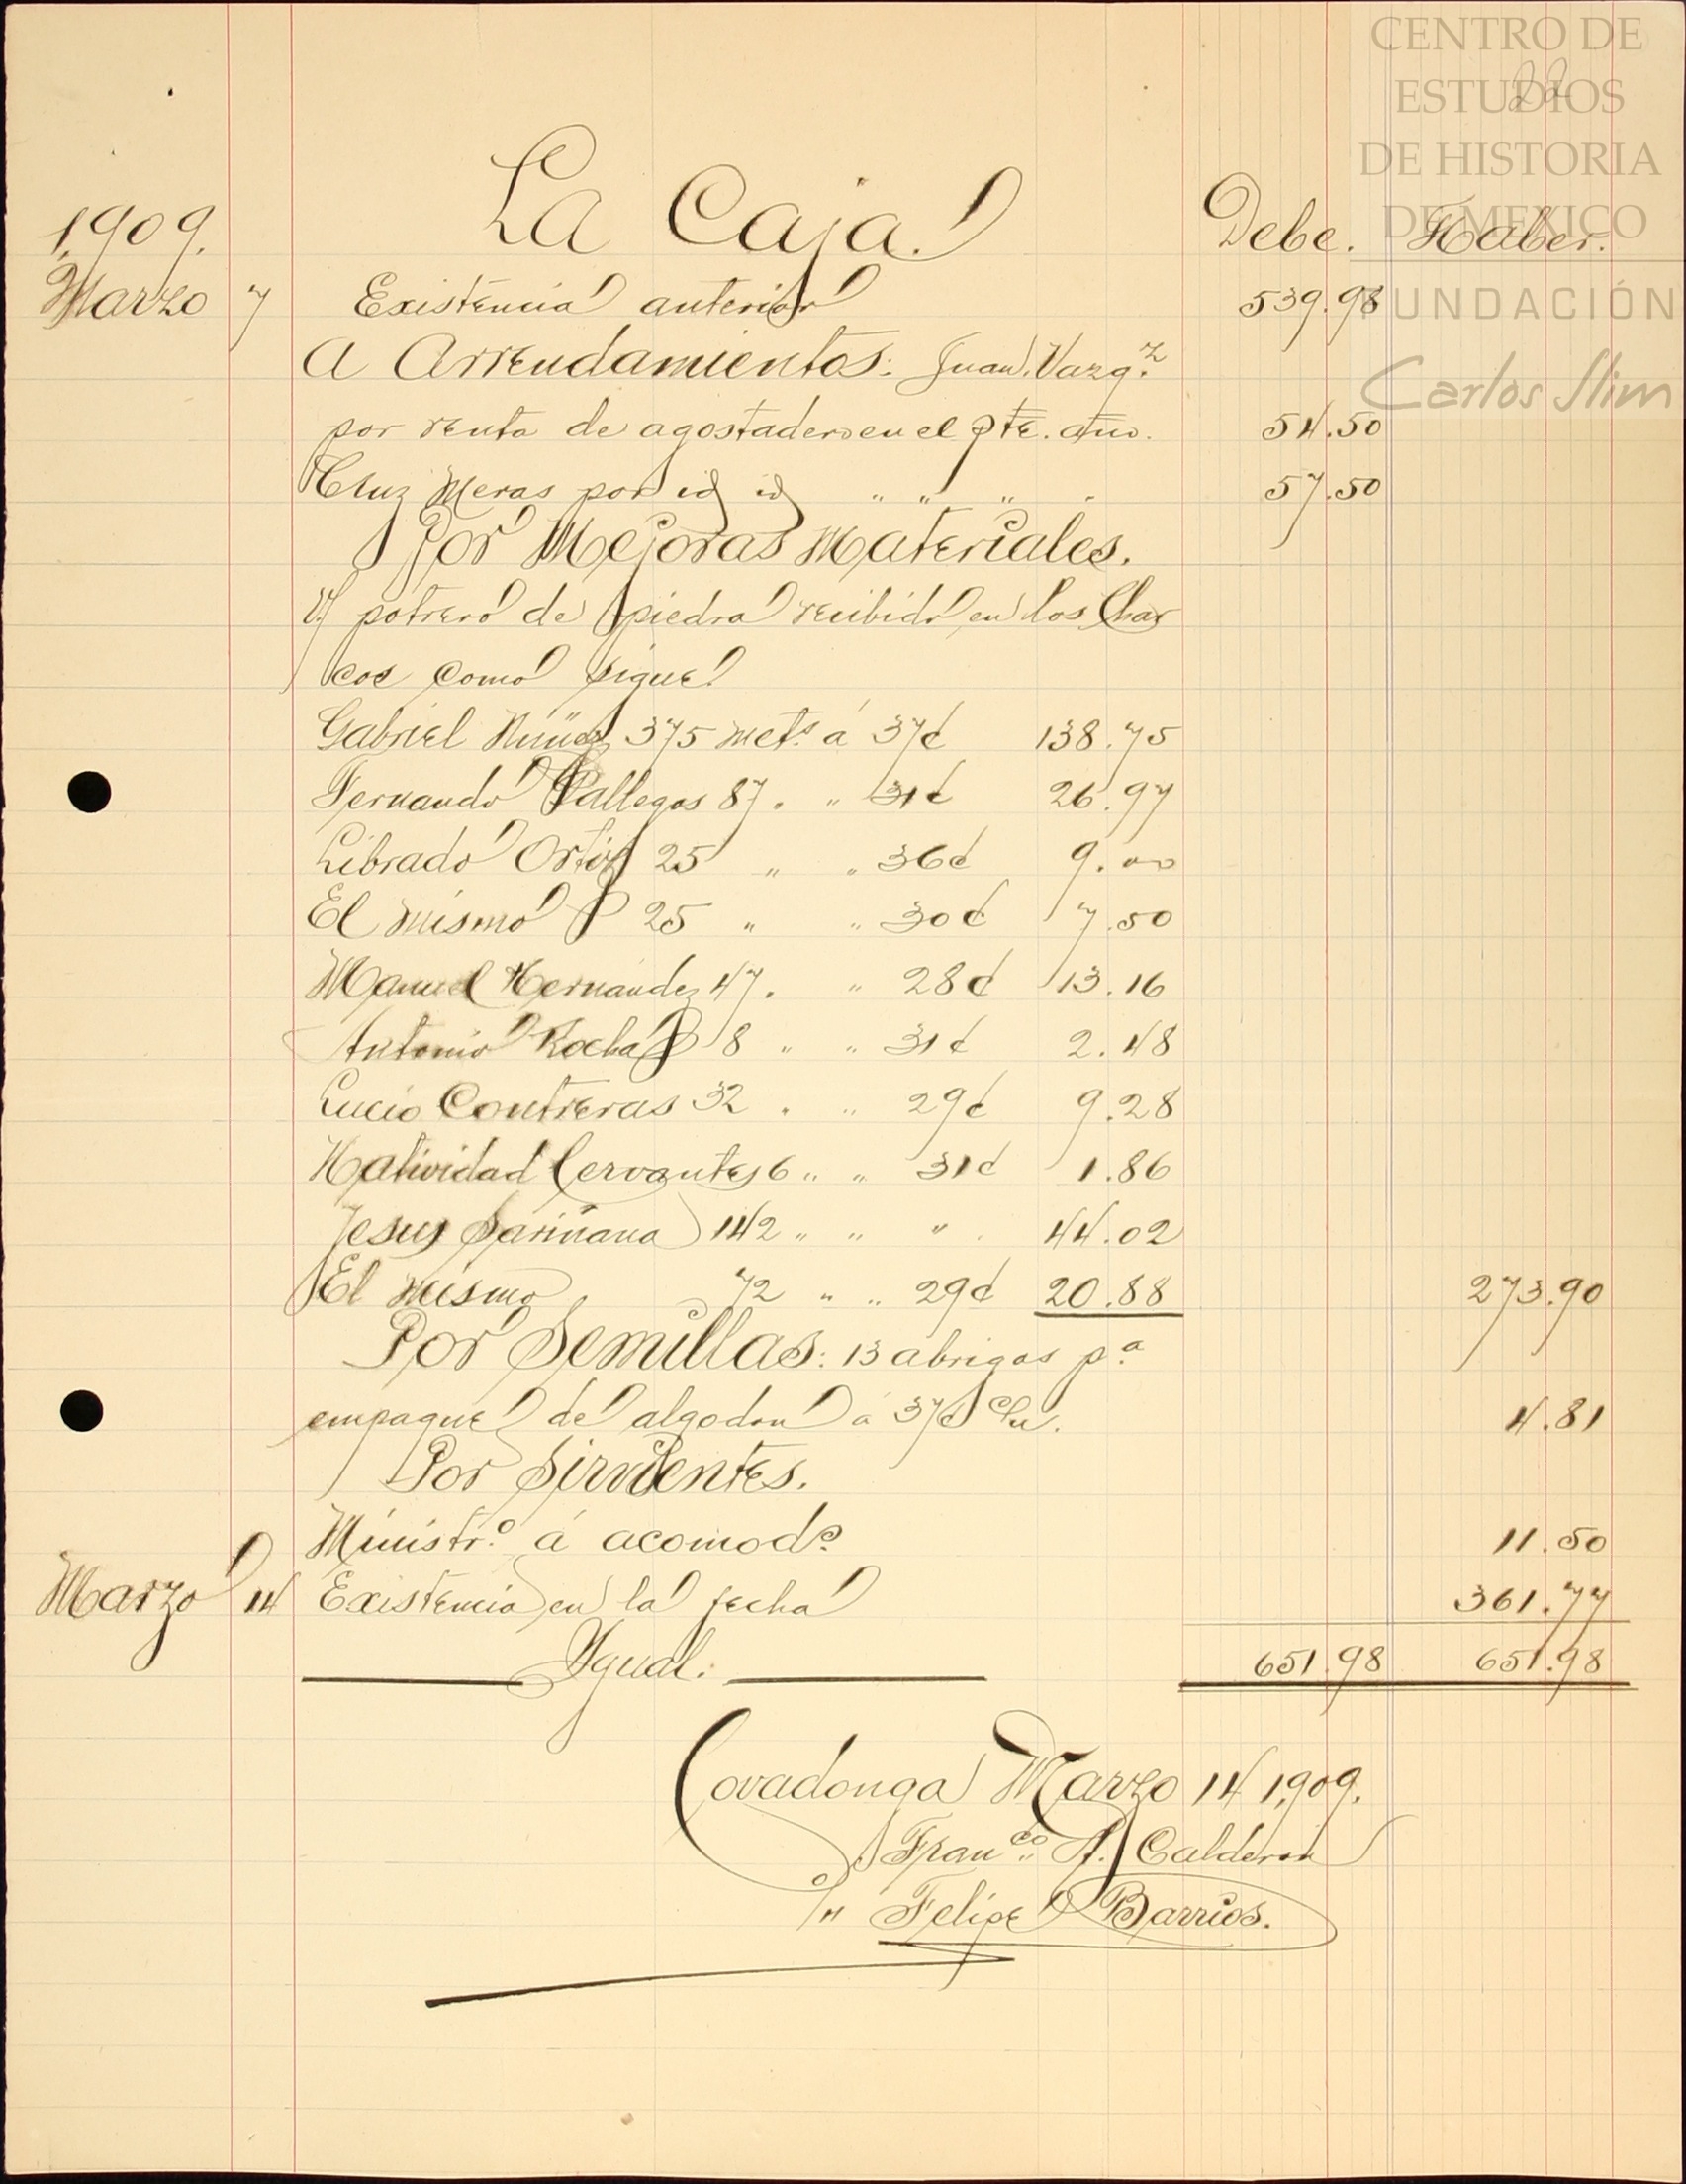 CENTRO DE
ESTUDIOS
DE HISTORIA
DE MEXICO
FUNDACIÓN
Carlos Slim
22
1909. La Caja. Debe. Haber.
Marzo 7 Existencia anterior 539.98
A Arrendamientos: Juan Vazqz
por renta de agostadero en el pte. año. 54.50
Cruz Meras por id id " " " 57.50
Por Mejoras Materiales.
potrero de piedra recibido en los Char
cos como sigue
Gabriel Núñez 375 mets á 37¢ 138.75
Fernando Gallegos 87 . " 31¢ 26.97
Librado Ortiz 25 " " 36¢ 9.00
El mismo 25 " " 30¢ 7.50
Manuel Hernández 47 . " 28¢ 13.16
Antonio Rocha 8 " " 31¢ 2.48
Lucio Contreras 32 . " 29¢ 9.28
Natividad Cervantes 6 " " 31¢ 1.86
Jesus Sariñana 142 " " " 44.02
El mismo 72 " " 29¢ 20.88 273.90
Por Semillas: 13 abrigos pa
empaque de algodon á 37¢ c/u. 4.81
Por Sirvientes.
Ministro á acomodo 11.50
Marzo 14 Existencia en la fecha 361.77
Ygual. 651.98 651.98
Covadonga Marzo 14 1909.
Franco A. Calderon
Felipe Barrios.